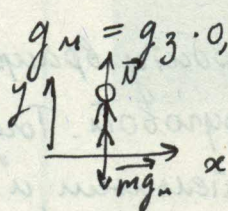 g_м = g_З · 0,
y
N⃗
x
mg⃗_м